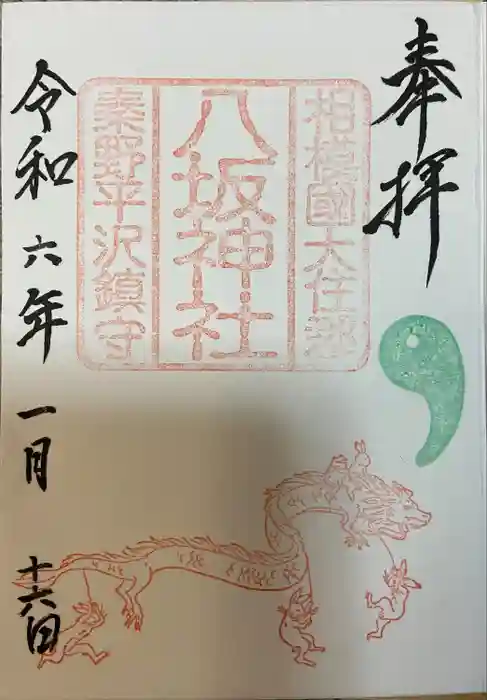 奉拝
相模國大住郡
八坂神社
秦野平沢鎮守
令和六年一月十六日